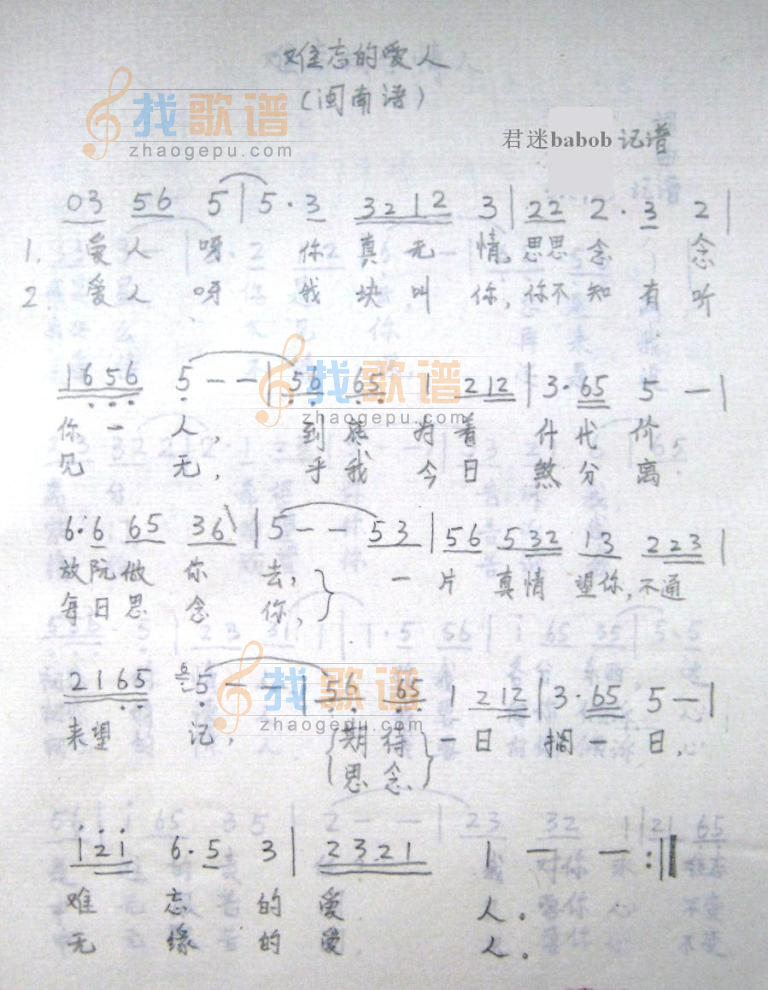 难忘的爱人
(闽南语)
找歌谱
zhaogepu.com
君迷babob 记谱
03 56 5 | 5·3 3212 3 | 22 2·3 2 |
1. 爱人呀 你真无情,思思念念
2. 爱人呀 我块叫你,你不知有听
1656 5 — — | 56 65 1 212 | 3·65 5 — |
找歌谱
zhaogepu.com
你一人, 到底为着什代价
见无, 乎我今日煞分离
6·6 65 36 | 5 — — 53 | 56 532 13 223 |
放阮做你去, 一片真情望你,不通
每日思念你,
2165 5 — — | 56 65 1 212 | 3·65 5 — |
找歌谱
zhaogepu.com
来望记, 期待一日搁一日,
思念
i2i 6·5 3 | 2321 1 — — :‖
难忘的爱人。
无缘的爱人。